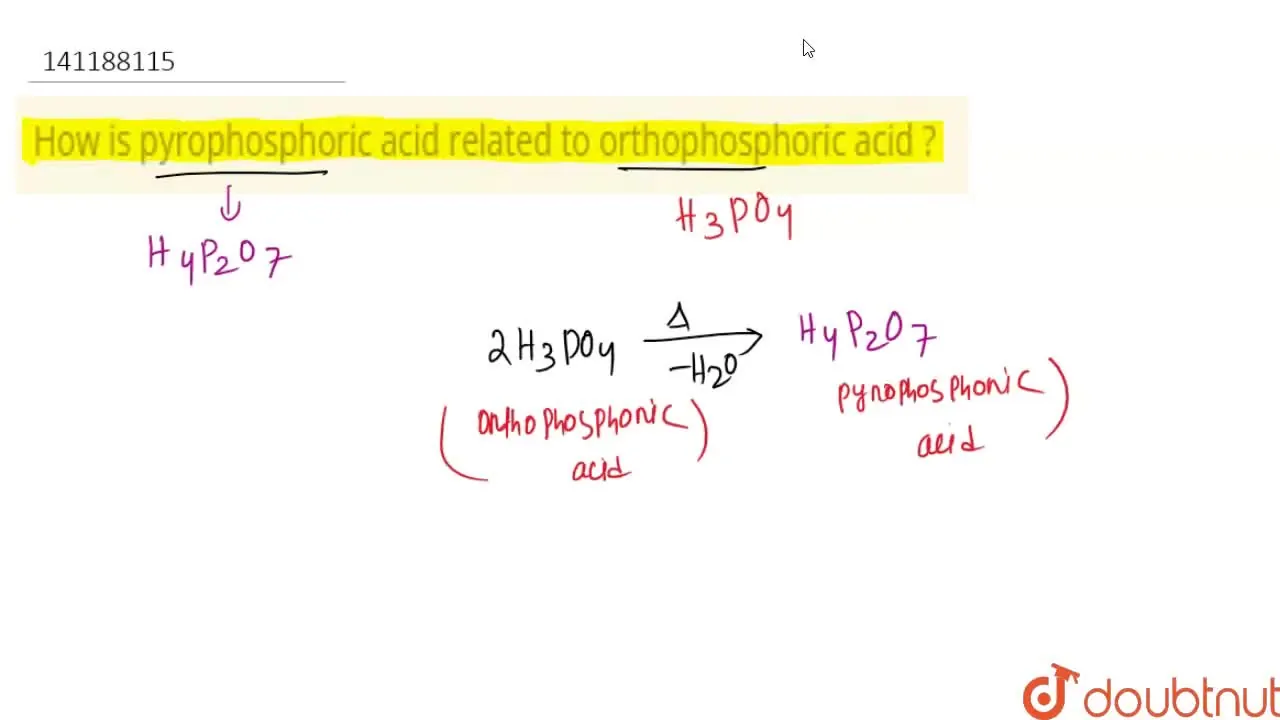 141188115
How is pyrophosphoric acid related to orthophosphoric acid ?
H3PO4
↓
H4P2O7
2H3PO4 Δ -H2O → H4P2O7
(orthophosphoric acid)
pyrophosphoric acid)
doubtnut